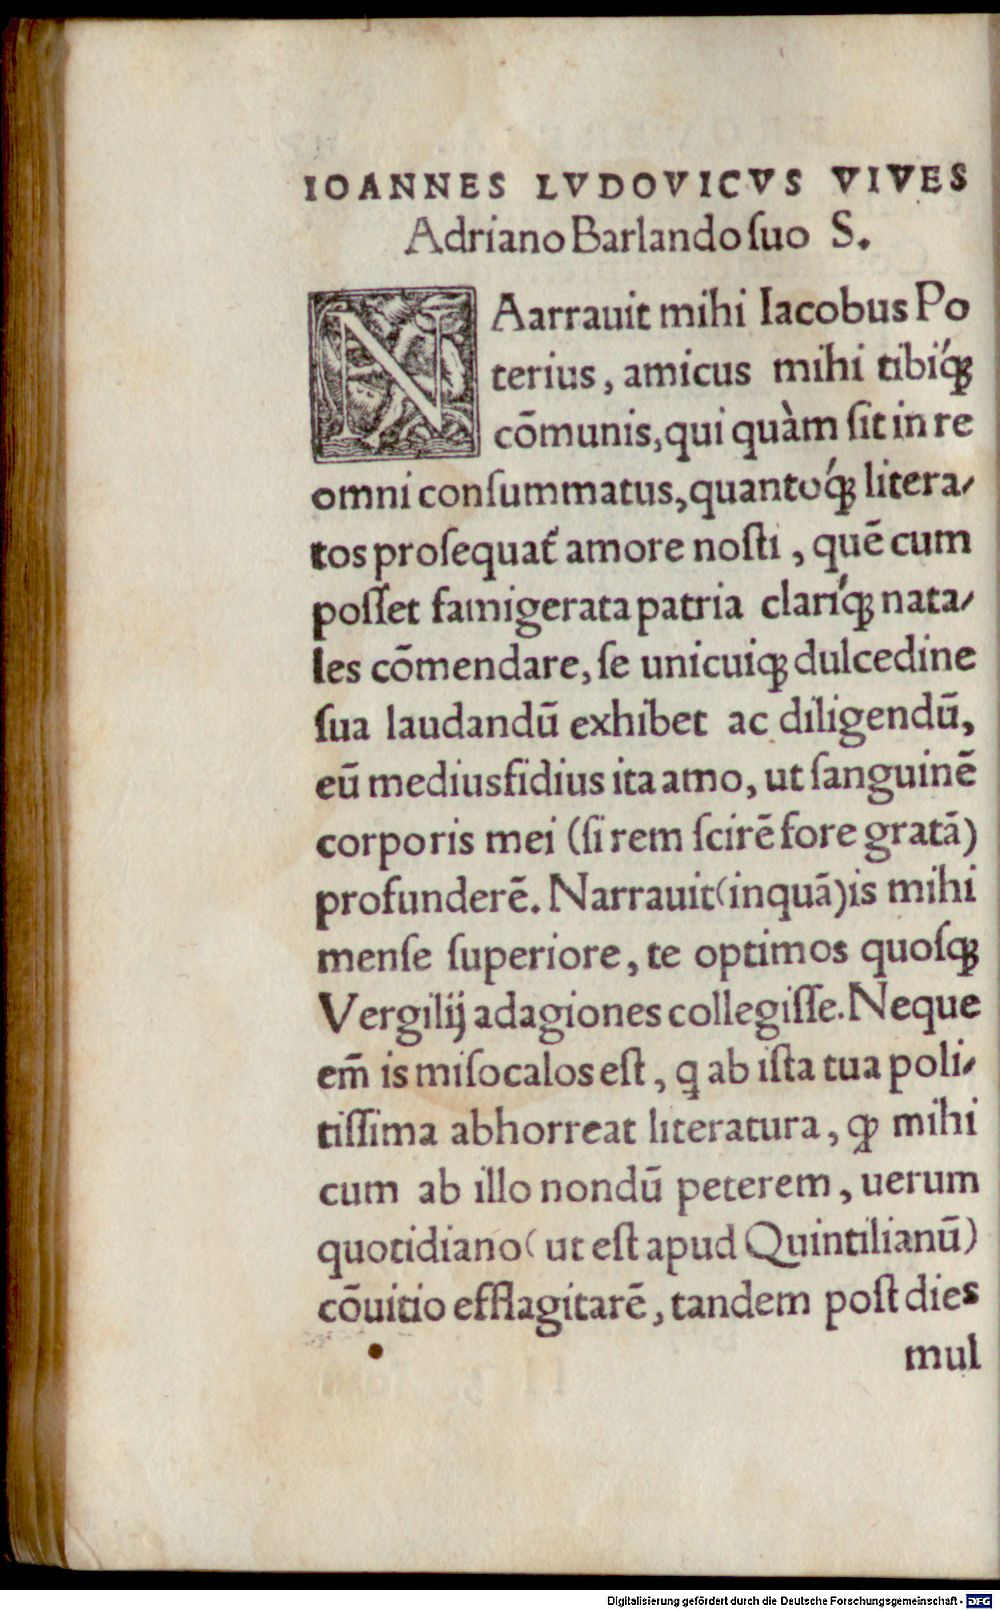 IOANNES LVDOVICVS VIVES
Adriano Barlando ſuo S.
NAarrauit mihi Iacobus Po
terius, amicus mihi tibiq́;
cōmunis, qui quàm ſit in re
omni conſummatus, quantoq́; litera⸗
tos proſequat᷑ amore noſti, quē cum
poſſet famigerata patria clariq́; nata⸗
les cōmendare, ſe unicuiq; dulcedine
ſua laudandū exhibet ac diligendū,
eū mediusfidius ita amo, ut ſanguinē
corporis mei (ſi rem ſcirē fore gratā)
profunderē. Narrauit (inquā) is mihi
menſe ſuperiore, te optimos quoſq;
Vergilij adagiones collegiſſe. Neque
em̄ is miſocalos eſt, q ab iſta tua poli⸗
tiſſima abhorreat literatura, ꝙ mihi
cum ab illo nondū peterem, uerum
quotidiano (ut eſt apud Quintilianū)
cōuitio efflagitarē, tandem poſt dies
mul
Digitalisierung gefördert durch die Deutsche Forschungsgemeinschaft - DFG